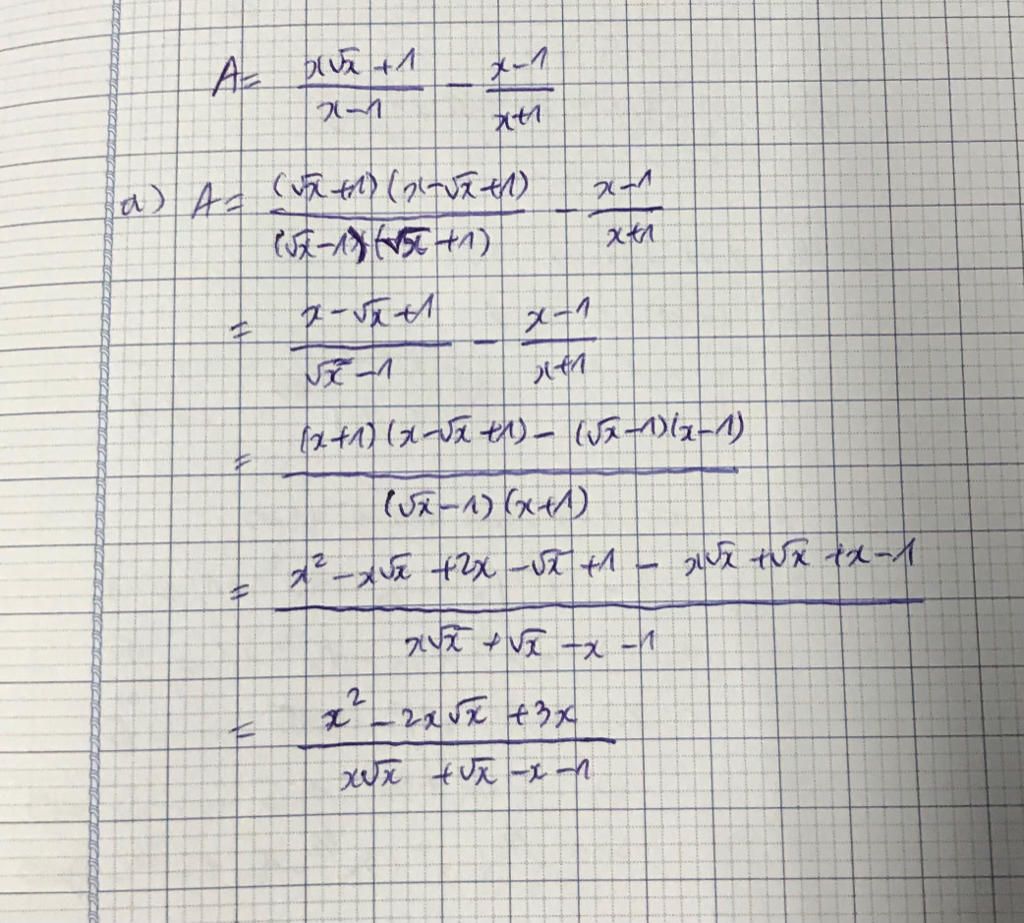 A = (x√x + 1)/(x - 1) - (x - 1)/(x + 1)
a) A = ((√x + 1)(x - √x + 1))/((√x - 1)(√x + 1)) - (x - 1)/(x + 1)
= (x - √x + 1)/(√x - 1) - (x - 1)/(x + 1)
= ((x + 1)(x - √x + 1) - (√x - 1)(x - 1))/((√x - 1)(x + 1))
= (x² - x√x + 2x - √x + 1 - x√x + √x + x - 1)/(x√x + √x - x - 1)
= (x² - 2x√x + 3x)/(x√x + √x - x - 1)